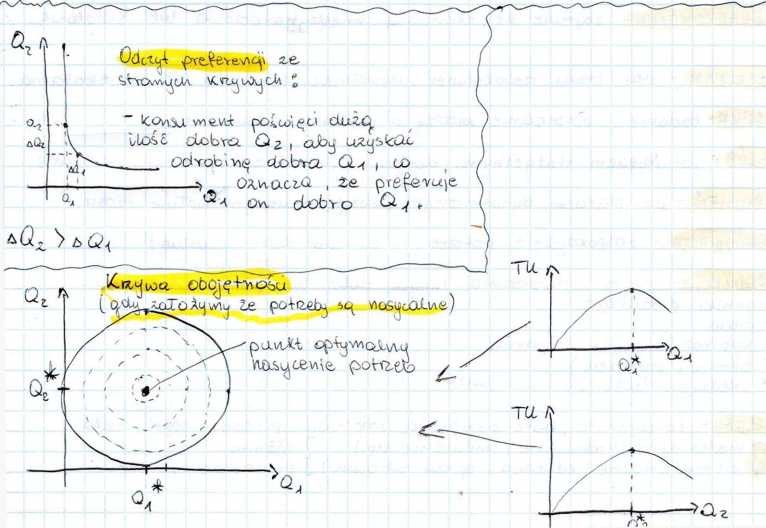 Odczyt preferencji ze
stromych krzywych :
- konsument poświęci dużą
ilość dobra Q2, aby uzyskać
odrobinę dobra Q1, co
oznacza, że preferuje
on dobro Q1.
Q2
Q2
ΔQ2
ΔQ1
Q1
Q1
ΔQ2 > ΔQ1
Krzywa obojętności
(gdy założymy że potrzeby są nasycalne)
Q2
punkt optymalny
nasycenie potrzeb
Q2*
Q1*
Q1
TU
Q1*
Q1
TU
Q2*
Q2